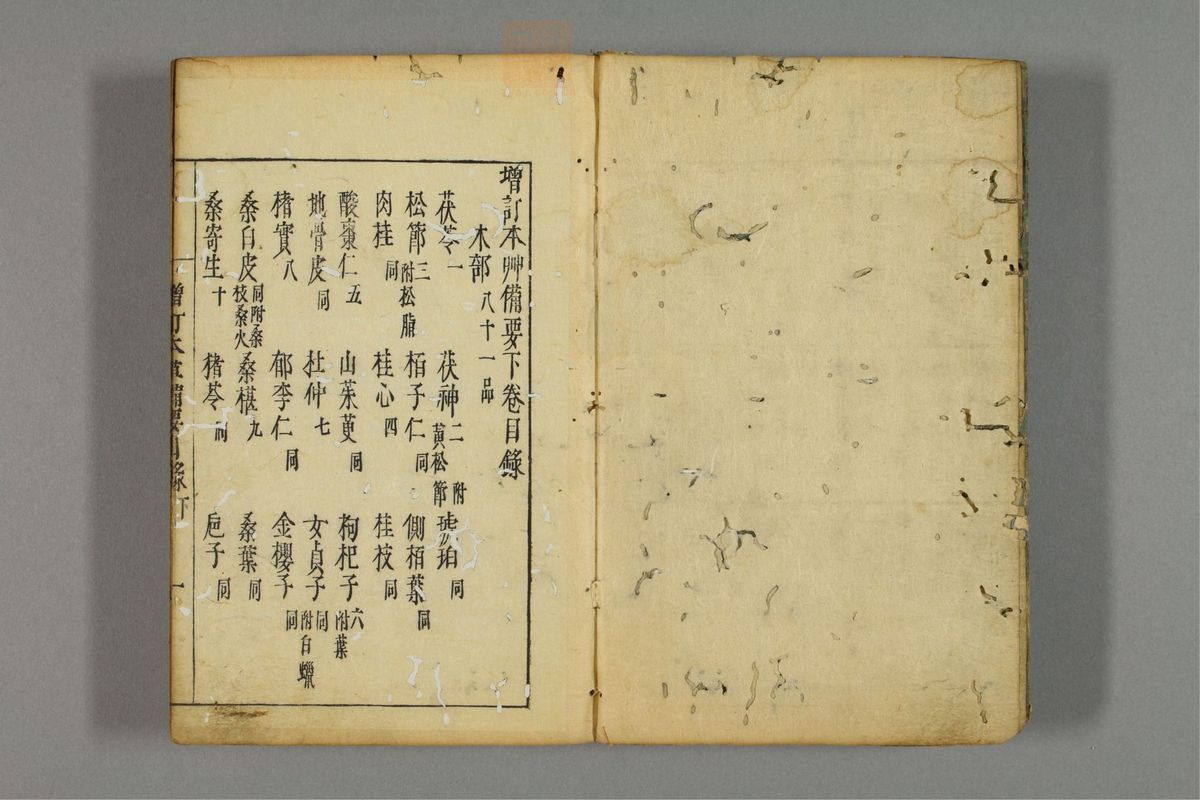 增訂本艸備要下卷目錄
木部 八十一品
茯苓 一 茯神 二 附黃松節 琥珀 同
松節 三 附松脂 栢子仁 同 側栢葉 同
肉桂 同 桂心 四 桂枝 同
酸棗仁 五 山茱萸 同 枸杞子 六 附葉
地骨皮 同 杜仲 七 女貞子 同 附白蠟
楮實 八 郁李仁 同 金櫻子 同
桑白皮 同附桑枝桑火 桑椹 九 桑葉 同
桑寄生 十 猪苓 同 巵子 同
增訂本草備要目錄下 一